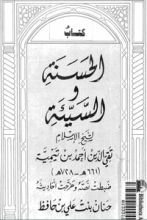 كتاب
الحسنة
و
السيئة
لشيخ الإسلام
تقي الدين أحمد بن تيمية
(٦٦١ - ٧٢٨هـ)
ضبطت نصه وخرجت أحاديثه
حنان بنت علي بن حافظ